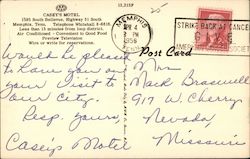 13,215F
CASEY'S MOTEL
1585 South Bellevue, Highway 51 South
Memphis, Tenn. Telephone Whitehall
Less than 15 minutes from loop district.
Air Conditioned - Convenient to Good Food
Freeview Television
Wire or write for reservations.
MEMPHIS
4
PM
1956
TENN
STRIKE BACK AT CANCER
AMERICAN SOCIETY
Post Card
Would be pleased
to have you on
your visit to
our City.
Resp. yours,
Casey's Motel
Mrs
Mack Braswell
917 W. Cherry
Nevada,
Missouri